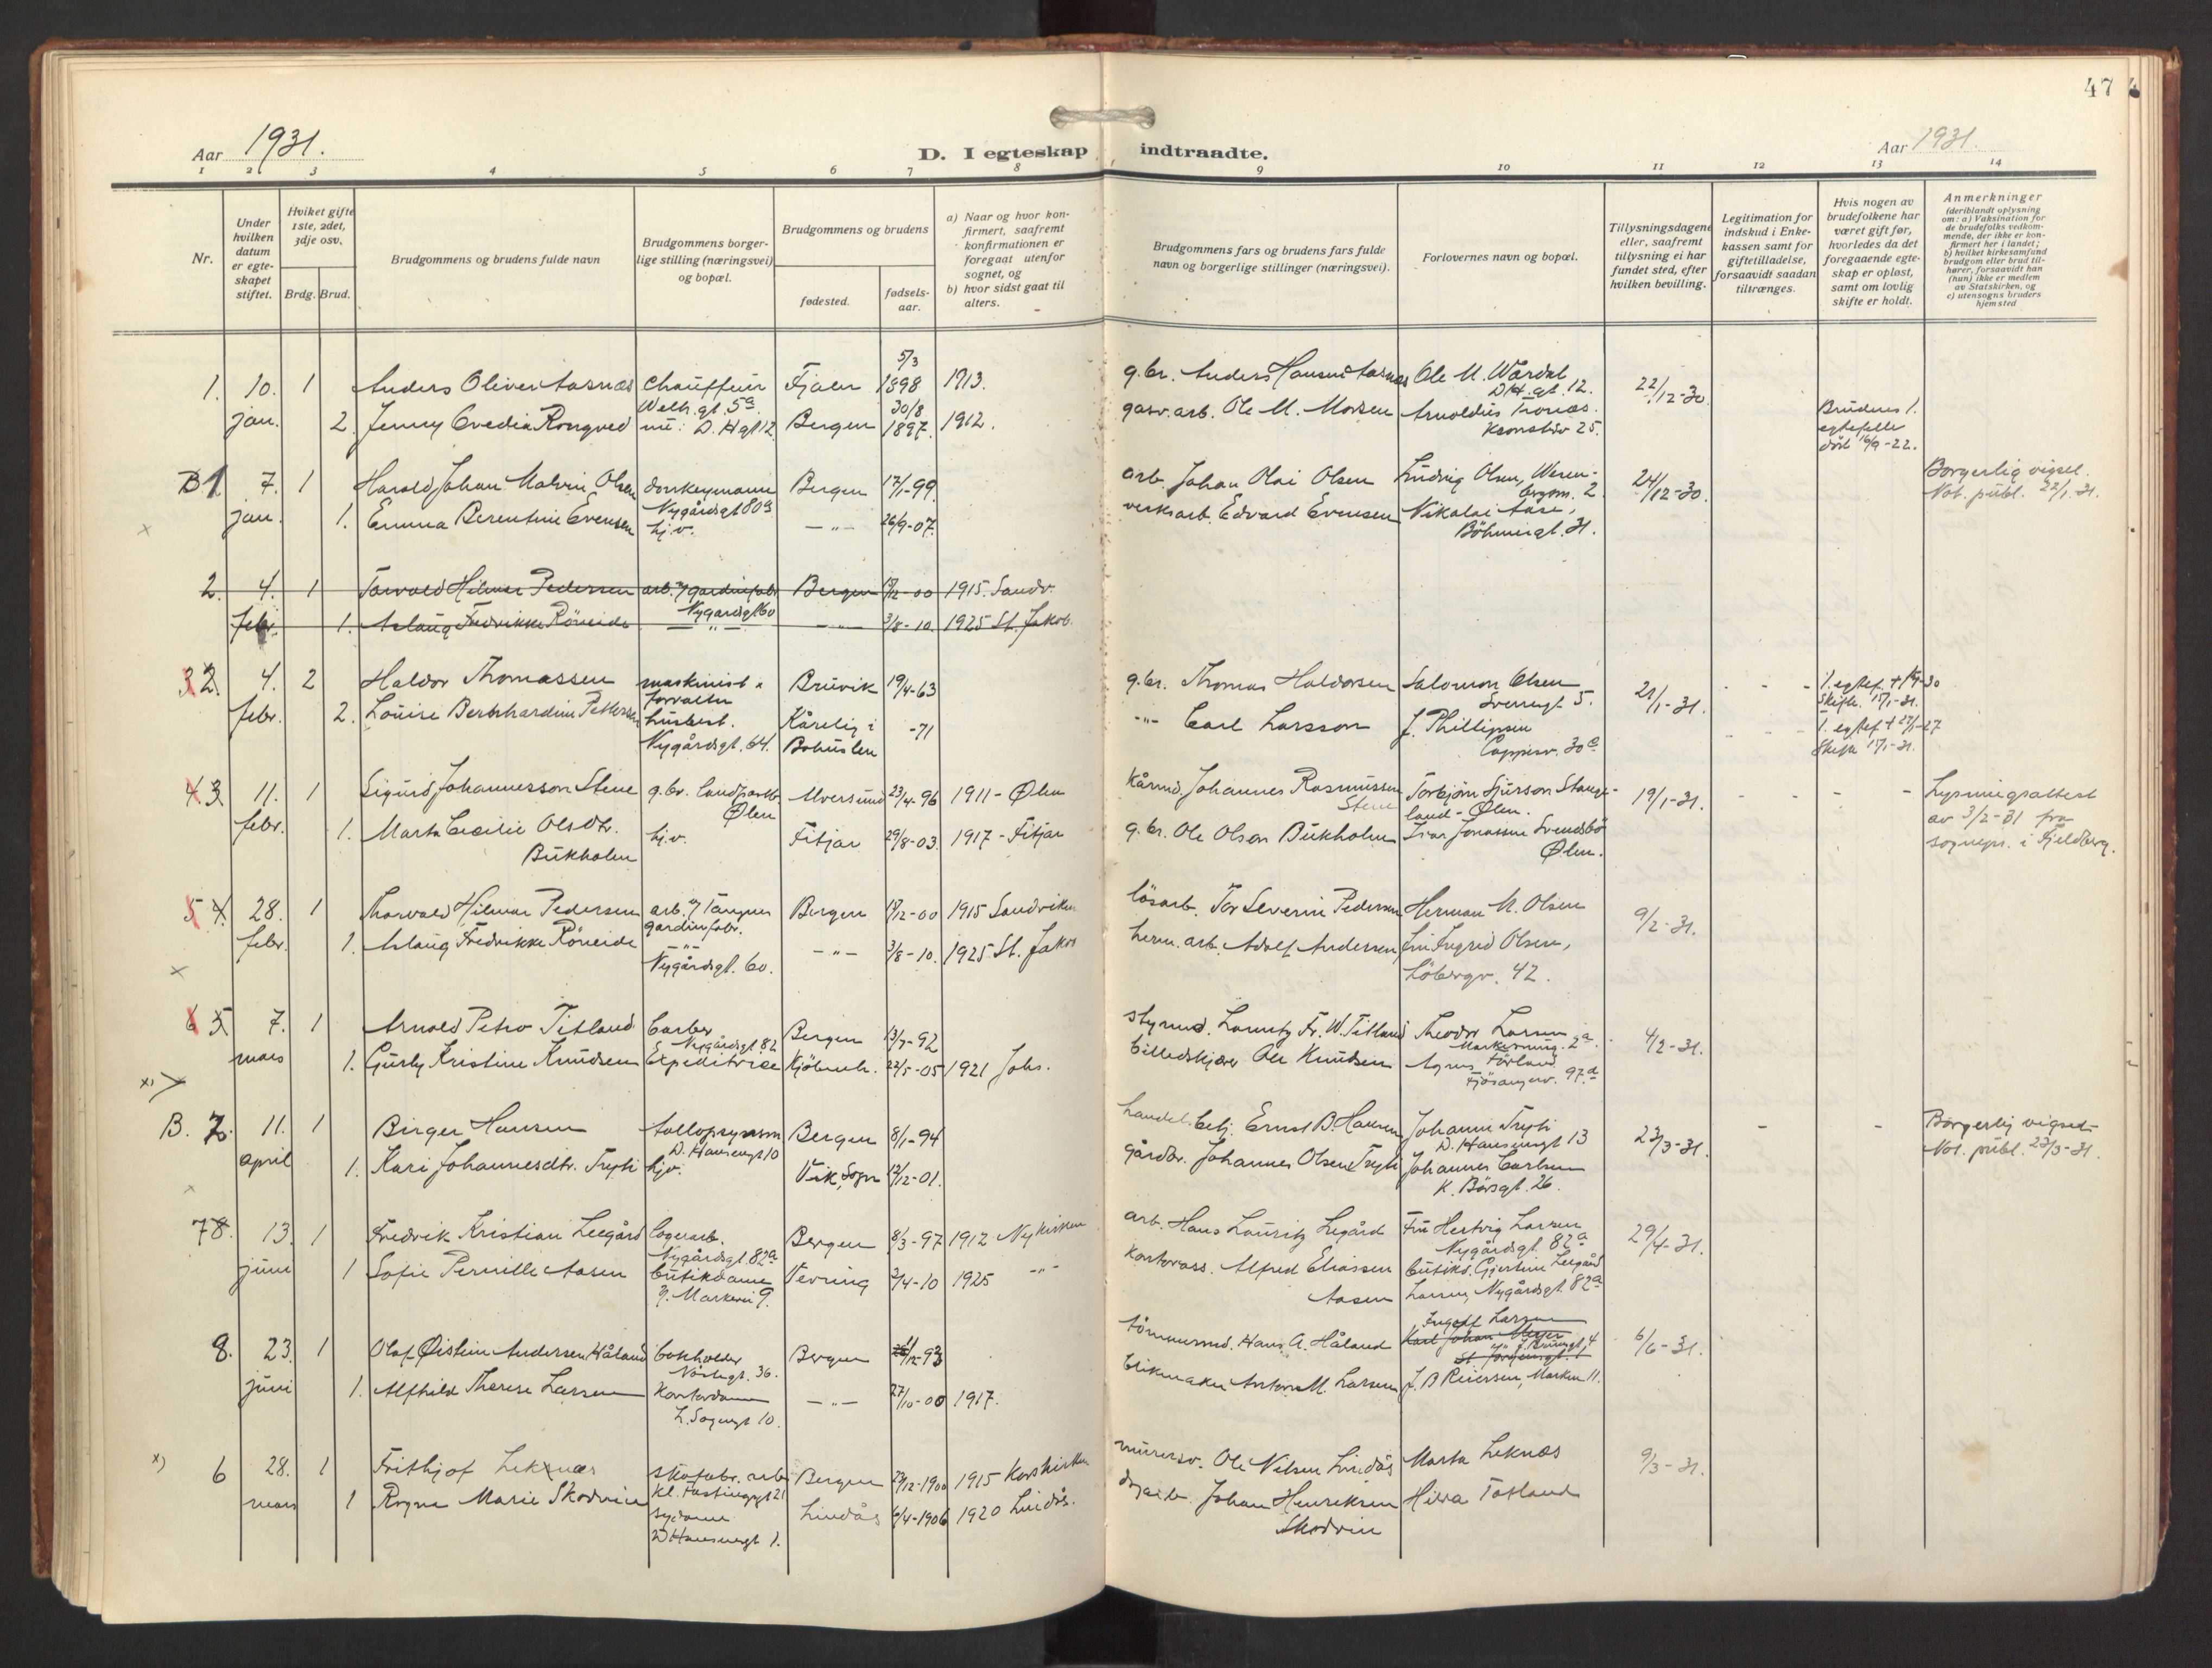 47
Aar 1931.
D. I egteskap indtraadte.
Aar 1931.
1 2 3 4 5 6 7 8 9 10 11 12 13 14
Nr.
Under hvilken datum er egteskapet stiftet.
Hviket gifte 1ste, 2det, 3dje osv.
Brdg. Brud.
Brudgommens og brudens fulde navn
Brudgommens borgerlige stilling (næringsvei) og bopæl.
Brudgommens og brudens
fødested.
fødselsaar.
a) Naar og hvor konfirmert, saafremt konfirmationen er foregaat utenfor sognet, og
b) hvor sidst gaat til alters.
Brudgommens fars og brudens fars fulde navn og borgerlige stillinger (næringsvei).
Forlovernes navn og bopæl.
Tillysningsdagene eller, saafremt tillysning ei har fundet sted, efter hvilken bevilling.
Legitimation for indskud i Enkekassen samt for giftetilladelse, forsaavidt saadan tiltrænges.
Hvis nogen av brudefolkene har været gift før, hvorledes da det foregaaende egteskap er opløst, samt om lovlig skifte er holdt.
Anmerkninger (deriblandt oplysning om: a) Vaksination for de brudefolks vedkommende, der ikke er konfirmert her i landet; b) hvilket kirkesamfund brudgom eller brud tilhører, forsaavidt han (hun) ikke er medlem av Statskirken, og c) utensogns bruders hjemsted
1. 10. 1 Anders Oliver Aasnæs Chauffeur Fjaler 5/3 1898 1913. g.br. Anders Hansen Aasnæs Ole M. Wardal 22/12-30
Welh.gt. 5a. D.H.gt. 12.
jan. 2. Jenny Ovedia Rongved nu: D.Hgt 12 Bergen 30/8 1897. 1912. gasv.arb. Ole M. Monsen Arnoldus
25.
Brudens 1. egtefelle død 16/9-22.
B 1 7. 1 Harald Johan Malvin Olsen donkeymann Bergen 17/1-99 arb. Johan Olai Olsen Ludvig Olsen, 24/12-30. Borgerlig vigsel.
Nygårdsgt 80 2. Not. publ. 22/1.31.
jan. 1. Emma Berentine Evensen hj.v. -"- 26/9-07. verksarb. Edvard Evensen Nikolai Aase,
Böhmergt. 31.
2. 4. 1 Torvald Hilmar Pedersen arb. Bergen 18/12-00 1915. Sandv.
Nygardsgt 60
febr. 1. Aslaug Fredrikke Röneide -"- -"- 3/8-10. 1925 St. Jakob.
3 2. 4. 2 Haldor Thomassen maskinist Bruvik 19/4-63 g.br. Thomas Haldorsen Salomon Olsen 21/1-31. - - - 1. egtef. +
forvalter Sverresgt 5. Skifte 15/1-31.
febr. 2. Louise Bernhardine Pettersen husbest. -71 -"- Carl Larsson J. Phillipsen 1. egtef +
Nygårdsgt. 64. Bohuslen 30 Skifte 15/1-31.
4 3. 11. 1 Sigurd Johannesson Stene g.br. Alversund 23/4-96 1911 - Ølen Kårmd. Johannes Rasmussen Torbjørn Sjurson Stange- 19/1-31. - - - - Lysningsattest
Ølen Stene land - Ølen. av 3/2-31 fra
febr. 1. Marta Cecilie Olsdtr. hj.v. Fitjar 29/8-03. 1917 - Fitjar g.br. Ole Olson Bukholm Ivar Jonassen Svendsbö sognepr. i Fjeldberg.
Bukholm Ølen.
5 4 28. 1 Thorvald Hilmar Pedersen arb. Bergen 18/12-00 1915 Sandviken lösarb. Tor Severin Pedersen Herman M. Olsen 9/2-31.
gardinfabr.
febr. 1. Aslaug Fredrikke Röneide -"- -"- 3/8-10. 1925 St. Jakob Adolf Andersen Fru Ingrid Olsen,
Nygårdsgt. 60. Löbergsv. 42.
6 5 7. 1 Arnold Petro Titland barber Bergen 13/7-92 styrmd. Lauritz Fr. W. Titland Theodor Larsen 4/2-31.
Nygårdsgt 82 2a.
mars 1. Gurly Kristine Knudsen Expeditrise Kjöbenh. 22/5-05 1921 Johs. billedskjærer Ole Knudsen Agnes Förland
Fjösangerv. 97d
B. 7. 11. 1 Birger Hansen tollopsynsm Bergen 8/1-94 handel.betj. Ernst B. Hansen Johanne Tryti 23/3-31. - - Borgerlig vigsel
D. Hansensgt 10 D. Hansensgt 13 Not. publ. 23/3-31.
april 1. Kari Johannesdtr. Tryti hj.v. Vik, Sogn 12/12-01. gårdbr. Johannes Olsen Tryti Johannes Carlsen
K. Börsgt. 26.
7 8. 13. 1 Fredrik Kristian Leegård lagerarb. Bergen 8/3-97 1912 Nykirken arb. Hans Lauritz Legård Fru Hertvig Larsen 29/4-31.
Nygårdsgt. 82a Nygårdsgt. 82a
juni 1 Sofie Pernille Aasen butikdame Vevring 2/4-10 1925 -"- Kontorass. Alfred Eliassen butikd. Gjertine Leegård
9. Aasen Larsen, Nygårdsgt. 82a
8. 23. 1 Olaf Øistein Andersen Håland bokholder Bergen /12-93 tömmermd. Hans A. Håland Karl Johan Meyer 6/6-31.
Nöstegt. 36. Ingolf Larsen
juni 1. Alfhild Therese Larsen Kontordame -"- 27/10-00 1917. blikmaker Anton M. Larsen J. B. Reiersen, Marken 11.
10.
x) 6 28. 1 Frithjof Leknæs skofabr. arb. Bergen 29/12-1900 1915 Korskirken murersv. Ole Nilsen Lindås Marta Leknæs 9/3-31.
21
mars 1 Ragna Marie Skodvin sydame Lindås 6/4-1906 1920 Lindås. Johan Henriksen Hilda Totland
D Hansensgt 1. Skodvin